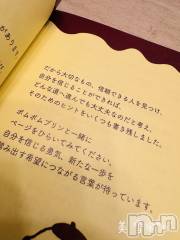 だから大切なもの、信頼できる人を見つけ、
自分を信じることができれば、
どんな道へ進んでも大丈夫なのだと考え、
そのためのヒントをいくつも書き残しました。
ポムポムプリンと一緒に
ページをひらいてみてください。
自分を信じる勇気、新たな一歩を
踏み出す希望につながる言葉が待っています。